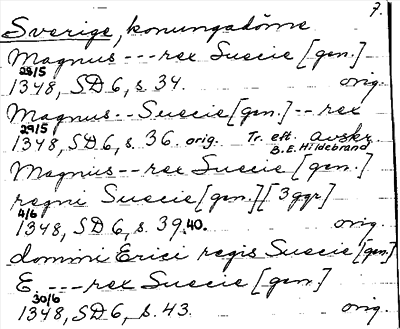 7.
Sverige, konungadöme
Magnus --- rex Suecie [gen.]
28/5
1348, SD 6, s. 34. orig.
Magnus -- Suecie [gen.] -- rex
29/5
1348, SD 6, s. 36. orig. Tr. eft. avskr.
B.E. Hildebrand
Magnus -- rex Suecie [gen.]
regni Suecie [gen.] [3 ggr]
4/6
1348, SD 6, s. 39, 40. orig.
domini Erici regis Suecie [gen.]
E. --- rex Suecie [gen.]
30/6
1348, SD 6, s. 43. orig.